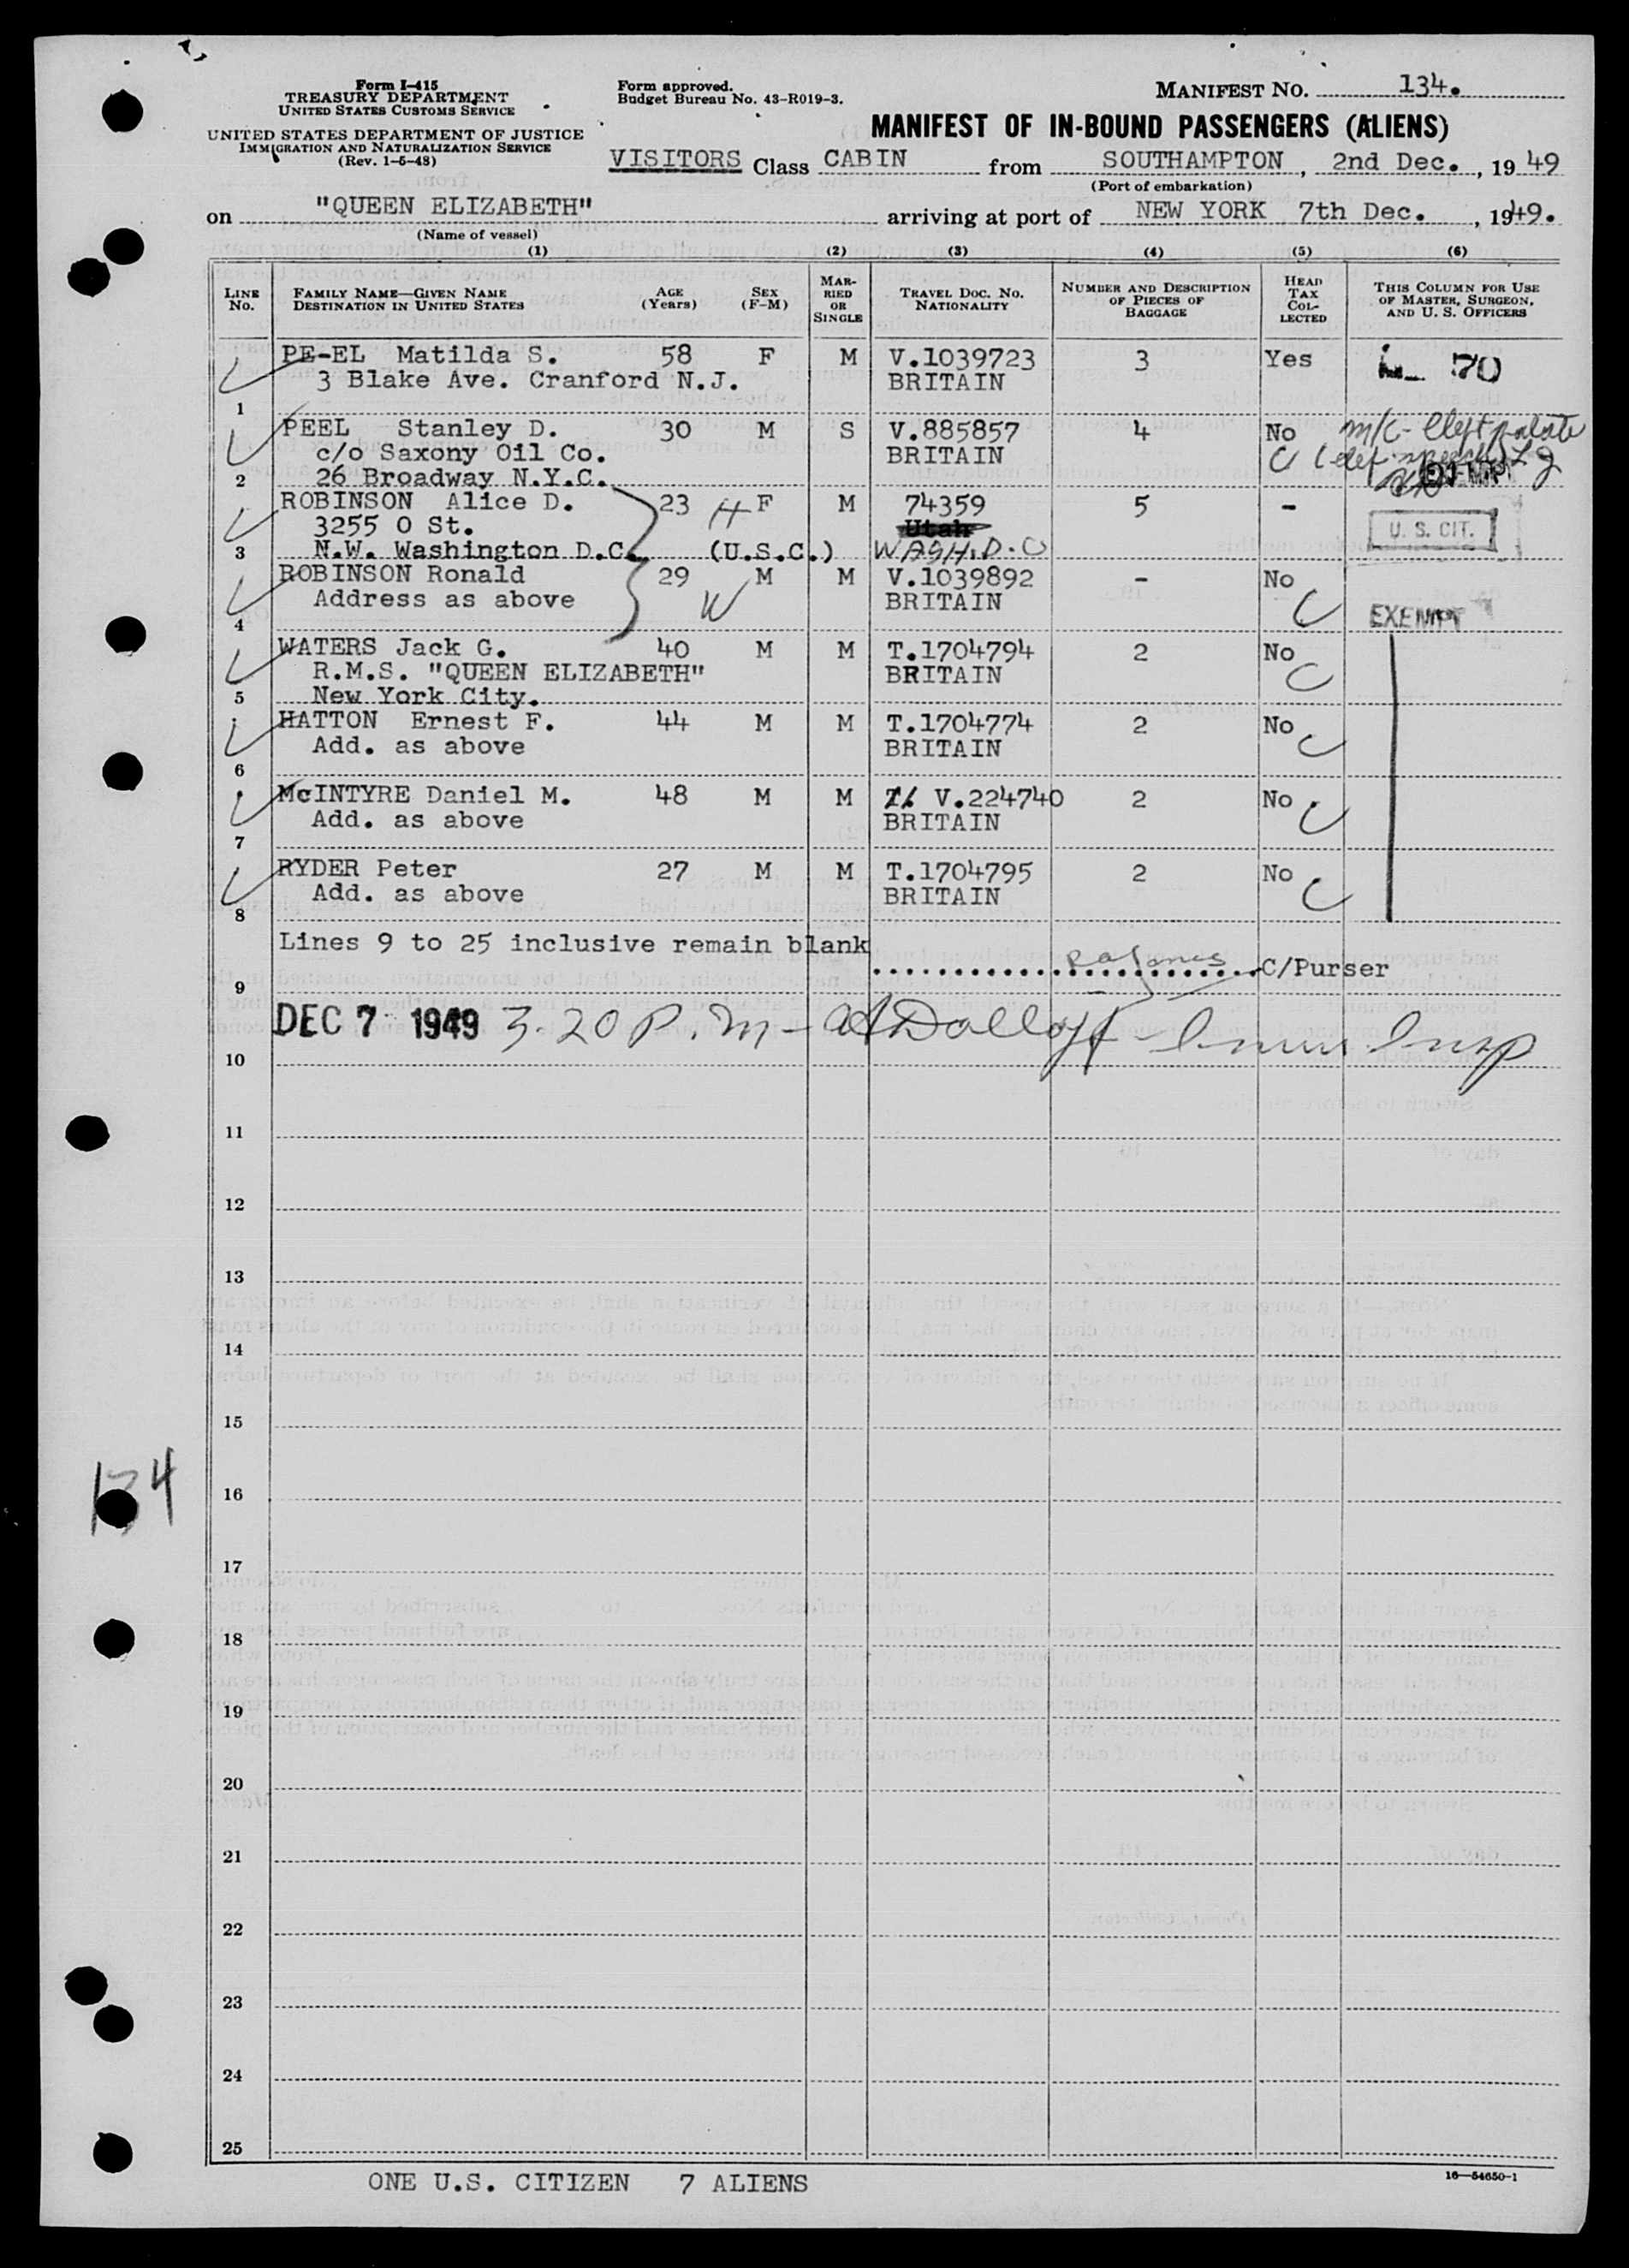 Form I-415
TREASURY DEPARTMENT
UNITED STATES CUSTOMS SERVICE
UNITED STATES DEPARTMENT OF JUSTICE
IMMIGRATION AND NATURALIZATION SERVICE
(Rev. 1-5-48)
Form approved.
Budget Bureau No. 43-R019-3.
MANIFEST NO. 134.
MANIFEST OF IN-BOUND PASSENGERS (ALIENS)
VISITORS Class CABIN from SOUTHAMPTON, 2nd Dec., 1949
(Port of embarkation)
on "QUEEN ELIZABETH" arriving at port of NEW YORK 7th Dec., 1949.
(Name of vessel)
(1) (2) (3) (4) (5) (6)
LINE No. FAMILY NAME—GIVEN NAME DESTINATION IN UNITED STATES AGE (Years) SEX (F-M) MARRIED OR SINGLE TRAVEL DOC. NO. NATIONALITY NUMBER AND DESCRIPTION OF PIECES OF BAGGAGE HEAD TAX COLLECTED THIS COLUMN FOR USE OF MASTER, SURGEON, AND U. S. OFFICERS
PE-EL Matilda S. 58 F M V.1039723 3 Yes 70
3 Blake Ave. Cranford N.J. BRITAIN
1
PEEL Stanley D. 30 M S V.885857 4 No m/c - Cleft palate
c/o Saxony Oil Co. BRITAIN C (def. speech)
2 26 Broadway N.Y.C.
ROBINSON Alice D. 23 H F M 74359 5 -
3255 O St. Utah U. S. CIT.
3 N.W. Washington D.C. (U.S.C.) WASH. D.C
ROBINSON Ronald 29 M M V.1039892 - No
Address as above W BRITAIN C EXEMPT
4
WATERS Jack G. 40 M M T.1704794 2 No
R.M.S. "QUEEN ELIZABETH" BRITAIN C
5 New York City.
HATTON Ernest F. 44 M M T.1704774 2 No
Add. as above BRITAIN C
6
McINTYRE Daniel M. 48 M M V.224740 2 No
Add. as above BRITAIN C
7
RYDER Peter 27 M M T.1704795 2 No
Add. as above BRITAIN C
8
Lines 9 to 25 inclusive remain blank
C/Purser
9
DEC 7 1949 3.20 P.m -
10
11
12
13
14
15
134
16
17
18
19
20
21
22
23
24
25
ONE U.S. CITIZEN 7 ALIENS
16—54650-1